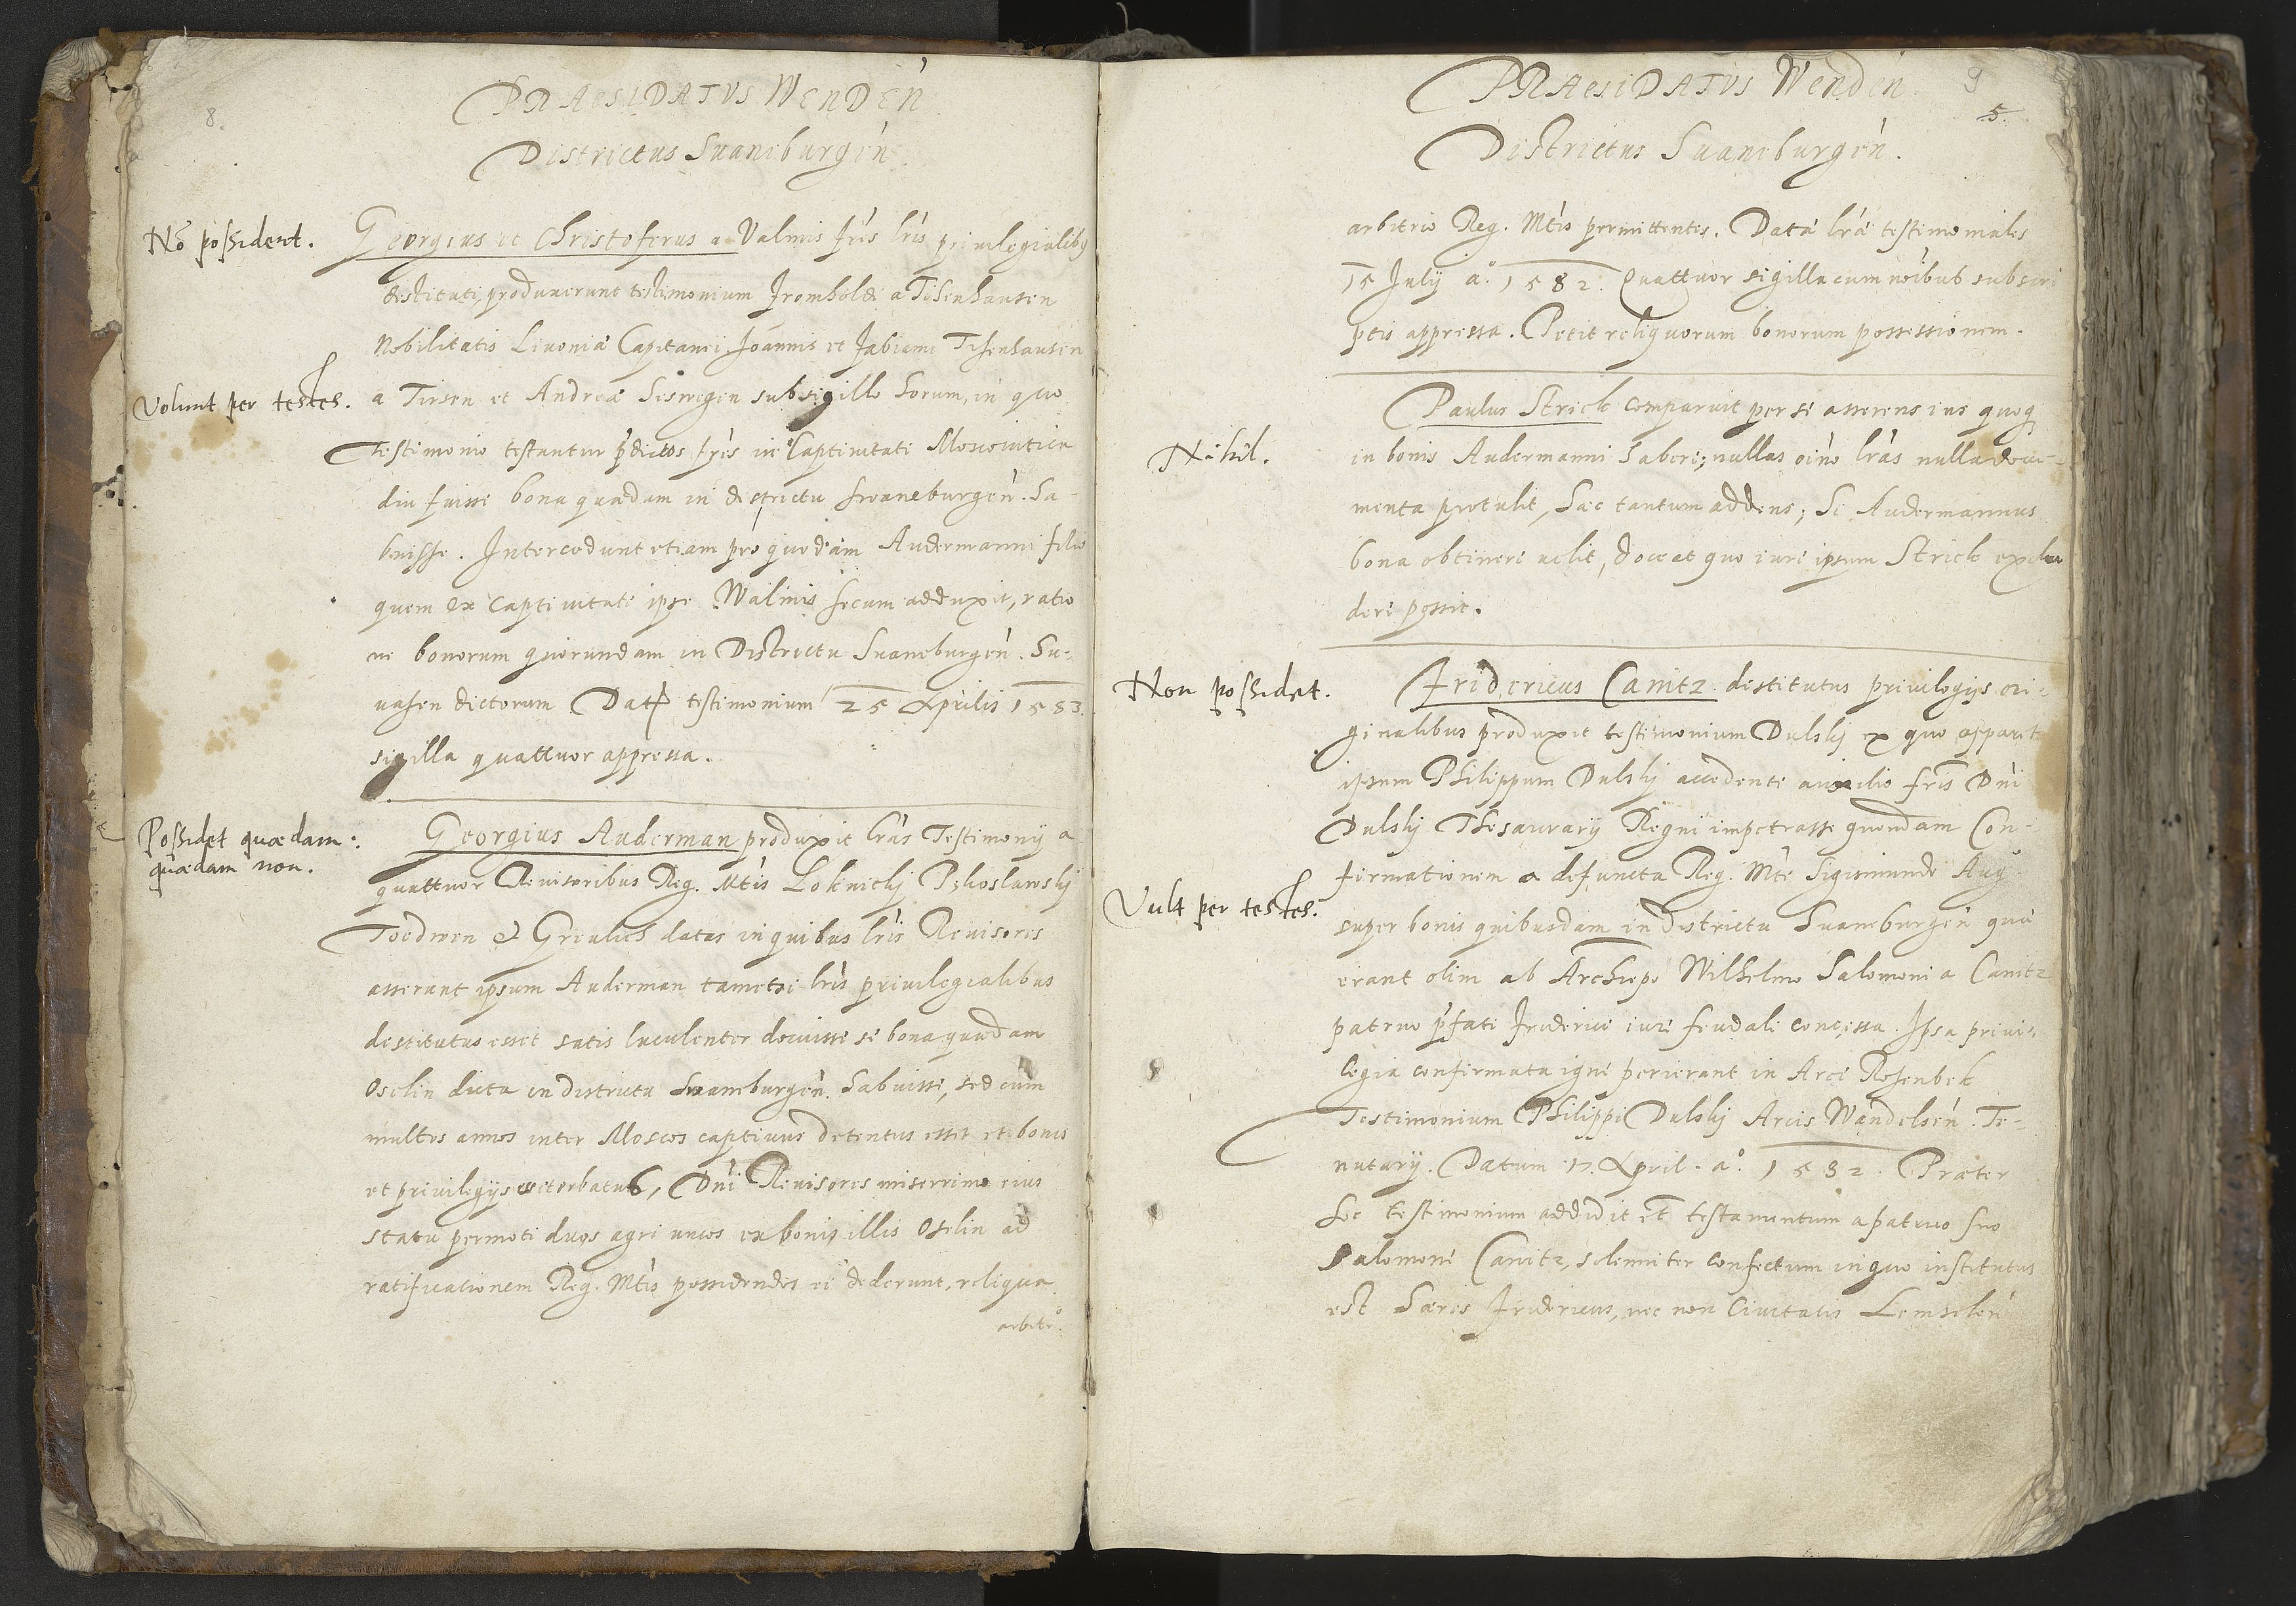 8.
PRAESIDATVS WENDEN̄
Districtus Suaneburgen̄.
Nō possident.
Georgius et Christoferus a Valmis frēs lrīs priuilegialibꝫ
destituti, produxerunt testimonium Fromholdi a Tisenhausen
Nobilitatis Liuoniæ Capitanei, Joannis et Fabiani Tisenhausen
Volunt per testes.
a Tirsen et Andreæ Seswegen sub sigillo horum, in quo
testimonio testantur p̄dictos frēs in Captiuitate Moscouitica
diu fuisse bona quædam in districtu Swaneburgen̄. ha-
buisse. Intercedunt etiam pro quodam Audermanni filio
quem ex captiuitate ipse Walmis secum adduxit, ratio
ne bonorum quorundam in Districtu Suaneburgen̄. Su-
uasen dictorum Dat testimonium 25 Aprilis 1583.
sigilla quattuor appressa.
Possidet quædam:
quædam non.
Georgius Auderman produxit lrās Testimonij a
quattuor Reuisoribus Reg. Mtīs Loknickj Pzkoslawskj
Toedwen & Greulich datas in quibus lrīs Reuisores
asserant ipsum Auderman tametsi lrīs priuilegialibus
destitutus esset satis luculenter docuisse se bona quædam
Oselin dicta in districtu Suaneburgen̄. habuisse, sed cum
multos annos inter Moscos captiuus detentus esset et bonis
et priuilegijs exturbatus, Dnī Reuisores miserrimo eius
statu permoti duos agri uncos ex bonis illis Oselin ad
ratificationem Reg. Mtīs possidendos ei dederunt, reliqua
arbitrō
9
5.
PRAESIDATVS Wenden̄.
Districtus Suaneburgen̄.
arbitrio Reg. Mtīs permittentes. Datæ lræ testimoniales
15 Julij aº. 1582. Quattuor sigilla cum nōībus subscri
ptis appressa. Petit reliquorum bonorum possessionem.
Nihil.
Paulus Strick comparuit per se asserens ius quoqꝫ
in bonis Audermanni habere; nullas oīno lrās nulla docu-
menta protulit, hæc tantum addens; Si Audermannus
bona obtinere uelit, doceat quo iure ipsum Strick exclu
dere possit.
Non possidet.
Fridericus Canitz destitutus priuilegijs ori-
ginalibus produxit testimonium Dulskj ex quo apparet
ipsum Philippum Dulskj accedente auxilio fris Dnī
Dulskj Thesaurarij Regni impetrasse quondam Con-
firmationem a defuncta Reg. Mte Sigismundi Aug̊
Vult per testes.
super bonis quibusdam in districtu Suaneburgen̄ quæ
erant olim ab Archiepo Wilhelmo Salomoni a Canitz
patruo p̄fati Friderici iure feudali concessa. Ipsa priui-
legia confirmata igne perierant in Arce Rosenbek
Testimonium Philippi Dulskj Arcis Wandelsen̄. Te-
nutarij. Datum 17. April. aº. 1582. Præter
hoc testimonium addidit et testamentum a patruo suo
Salomone Canitz, solenniter confectum in quo institutus
est hæres Fridericus, nec non Ciuitatis Lemselen̄